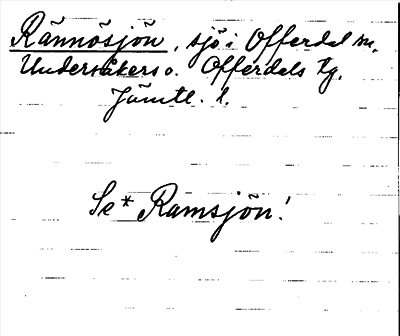 Rännösjön, sjö i Offerdal sn,
Undersåkers o. Offerdals tg,
Jämtl. l.
Se* Ramsjön!